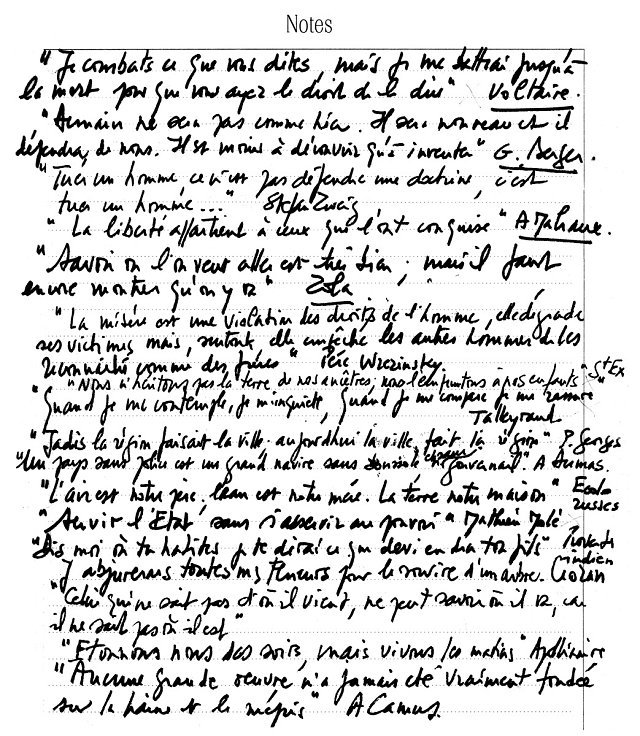 Notes
"Je combats ce que vous dites, mais je me battrai jusqu'à
la mort pour que vous ayez le droit de le dire" Voltaire.
"Demain ne sera pas comme hier. Il sera nouveau et il
dépendra de nous. Il est moins à découvrir qu'à inventer" G. Berger.
"Tuer un homme ce n'est pas défendre une doctrine, c'est
tuer un homme..." Stefan Zweig
"La liberté appartient à ceux qui l'ont conquise" A Malraux.
"Savoir où l'on veut aller est très bien; mais il faut
encore montrer qu'on y va" Zola
"La misère est une violation des droits de l'homme, elle dégrade
ses victimes mais, surtout, elle empêche les autres hommes de les
reconnaître comme des frères" Père Wrezinsky.
"Nous n'héritons pas la terre de nos ancêtres; nous l'empruntons à nos enfants" St Ex
"Quand je me contemple, je m'inquiète, Quand je me compare je me rassure"
Talleyrand
"Jadis la région faisait la ville. aujourdhui la ville fait la région" P. Georges
"Un pays sans police est un grand navire sans boussole et sans gouvernail". A Dumas.
"L'air est notre père, l'eau est notre mère. La terre notre maison"
"Servir l'Etat, sans s'asservir au pouvoir" Mathieu Molé
"Dis moi où tu habites je te dirai ce que deviendra ton fils" Proverbe indien
"J'abjurerais toutes mes terreurs pour le sourire d'un arbre. Cioran
"Celui qui ne sait pas d'où il vient, ne peut savoir où il va, car
il ne sait pas où il est"
"Etonnons nous des soirs, mais vivons les matins" Apollinaire
"Aucune grande oeuvre n'a jamais été vraiment fondée
sur la haine et le mépris" A Camus.